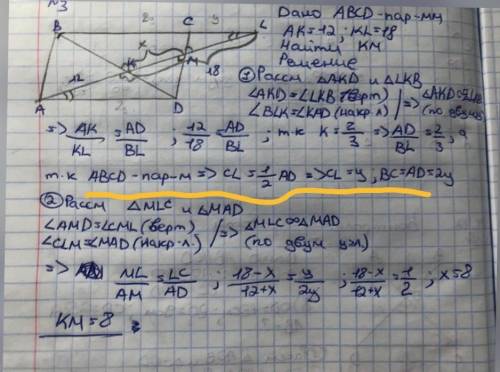 №3
2 C y L
B
x
K M
12 18
A D
Дано ABCD-пар-мм
AK=12; KL=18
Найти KM
Решение
① Рассм △AKD и △LKB
∠AKD=∠LKB (верт) / => △AKD∾△LKB
∠BLK=∠KAD (накр.л) (по двум уг)
=> AK/KL = AD/BL ; 12/18 = AD/BL ; т.к K=2/3 => AD/BL = 2/3, а
т.к ABCD-пар-м => CL=1/2 AD => CL=y; BC=AD=2y
② Рассм △MLC и △MAD
∠AMD=∠CML (верт) / => △MLC∾△MAD
∠CLM=∠MAD (накр-л.) (по двум угл)
=> ML/AM = LC/AD ; 18-x/12+x = y/2y ; 18-x/12+x = 1/2 ; x=8
KM=8